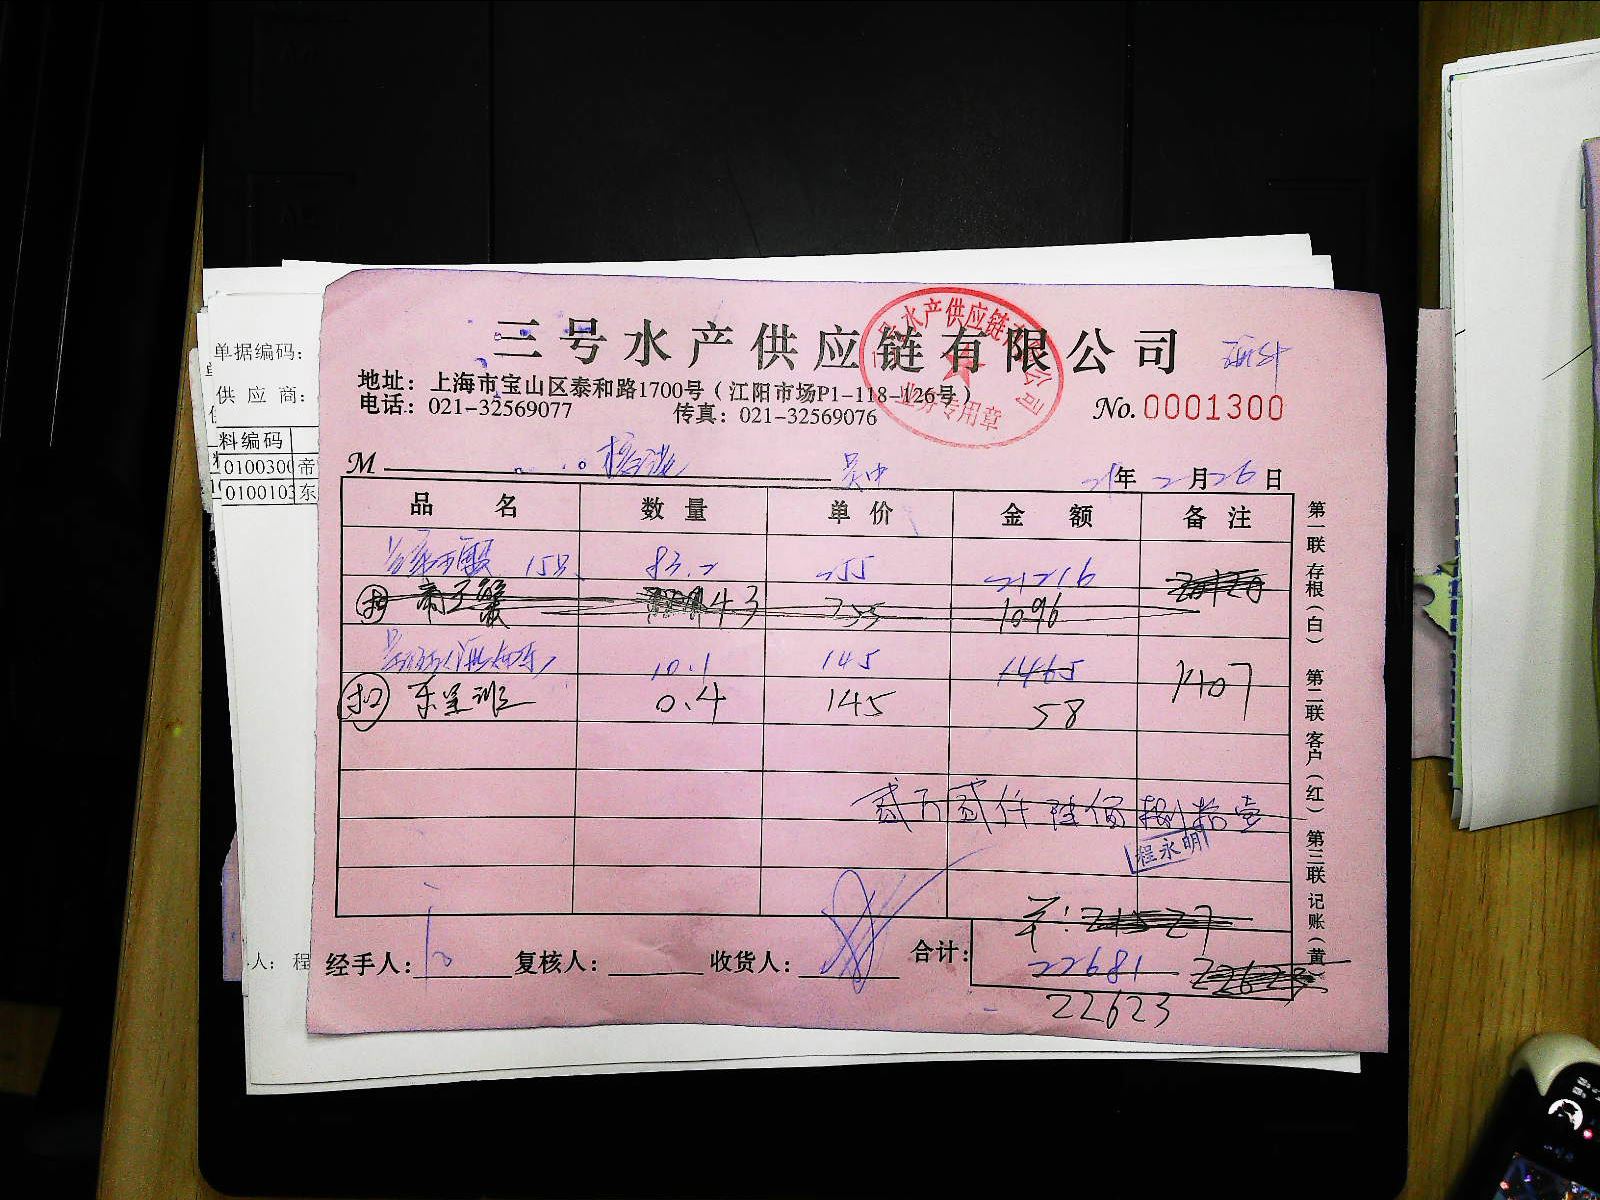 三号水产供应链有限公司
地址：上海市宝山区泰和路1700号（江阳市场P1-118-126号）
电话：021-32569077 传真：021-32569076
No.0001300
水产供应链有
公司
业务专用章
M 吴中 21年2月26日
品名 数量 单价 金额 备注
15只 83.2 255 21216
扣 帝王蟹 43 255 1096
10.1 145 1465
扣 东星斑 0.4 145 58 1407
贰万贰仟陆佰捌拾壹
程永明
22681
22623
经手人： 复核人： 收货人： 合计：
第一联 存根（白） 第二联 客户（红） 第三联 记账（黄）
单据编码：
供应商：
料编码
0100300 帝
0100103 东
人：程